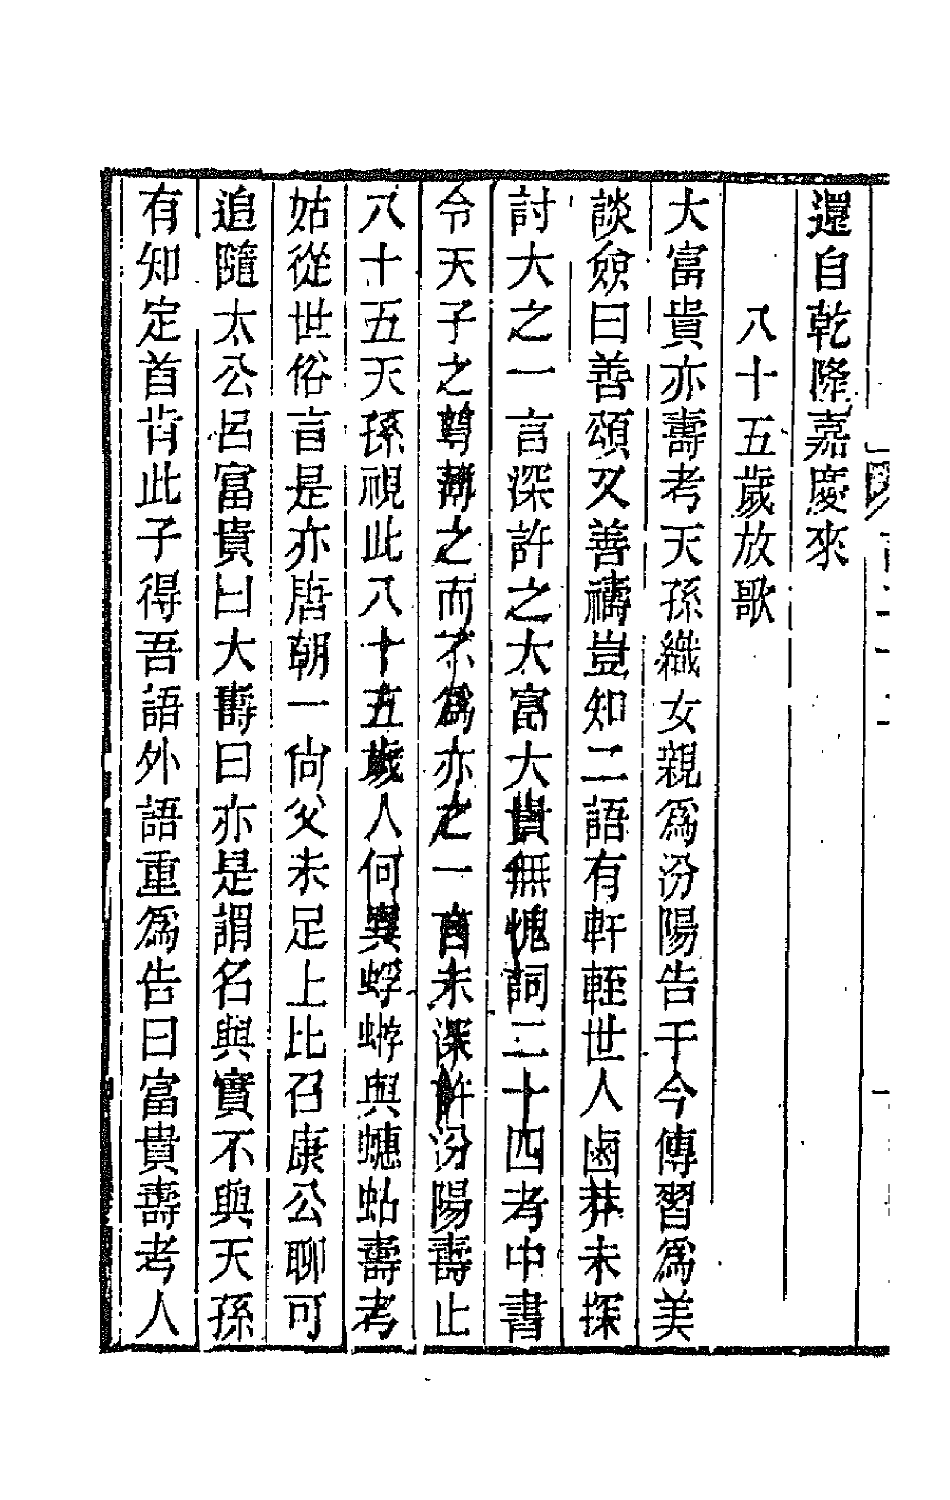 還自乾隆嘉慶來
八十五歲放歌
大富貴亦壽考天孫織女親為汾陽告于今傳習為美
談僉曰善頌又善禱豈知二語有軒輊世人鹵莽未探
討大之一言深許之大富大貴無愧詞二十四考中書
令天子之尊𫆀之而不為亦之一言未深許汾陽壽止
八十五天孫視此八十五歲人何異蜉蝣與蟪蛄壽考
姑從世俗言是亦唐朝一尙父未足上比召康公聊可
追隨太公呂富貴曰大壽曰亦是謂名與實不與天孫
有知定首肯此子得吾語外語重爲告曰富貴壽考人